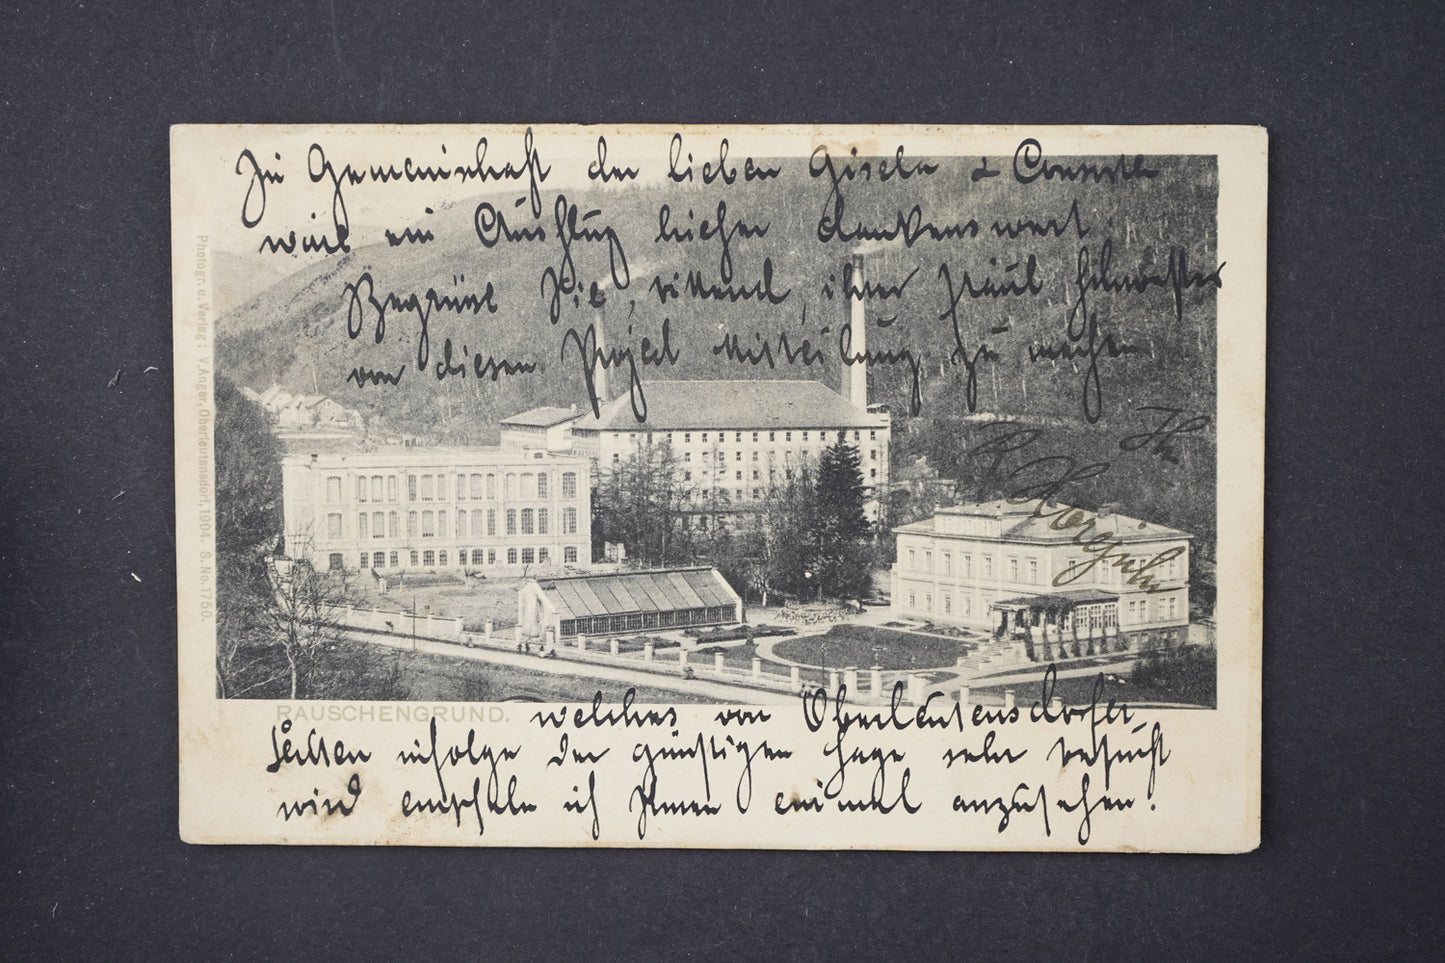 In Gemeinschaft der lieben Gisela &
wäre ein Ausflug hieher dankenswert.
Begrüße Sie, bittend, ihrer Fräul.
von diesem Projed Mitteilung zu machen
Ihr
RAUSCHENGRUND.
welches von Oberleutensdorfer
Seiten infolge der günstigen Lage sehr besucht
wird empfehle ich Ihnen einmal anzusehen.
Photogr. u. Verlag: V. Anger, Oberleutensdorf, 1904. 8. No. 1750.